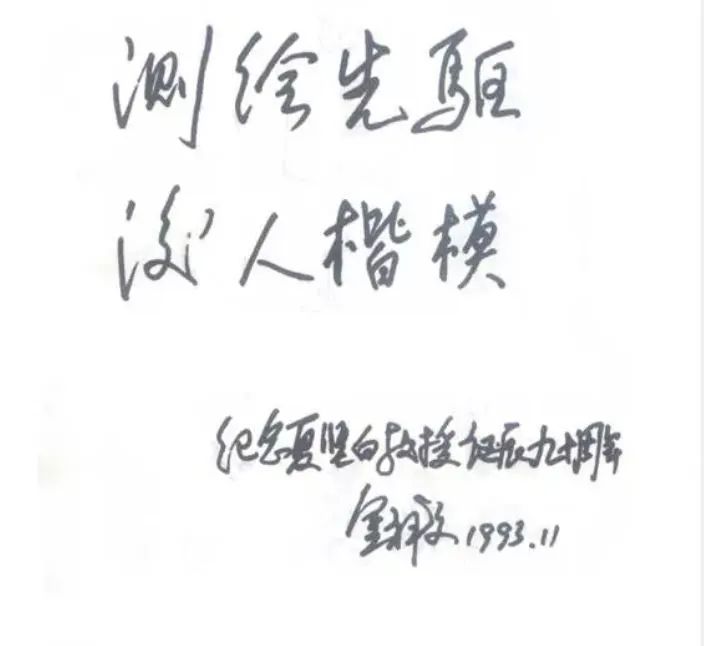 测绘先驱
人楷模
纪念夏坚白教授诞辰九十周年
金祥文 1993.11